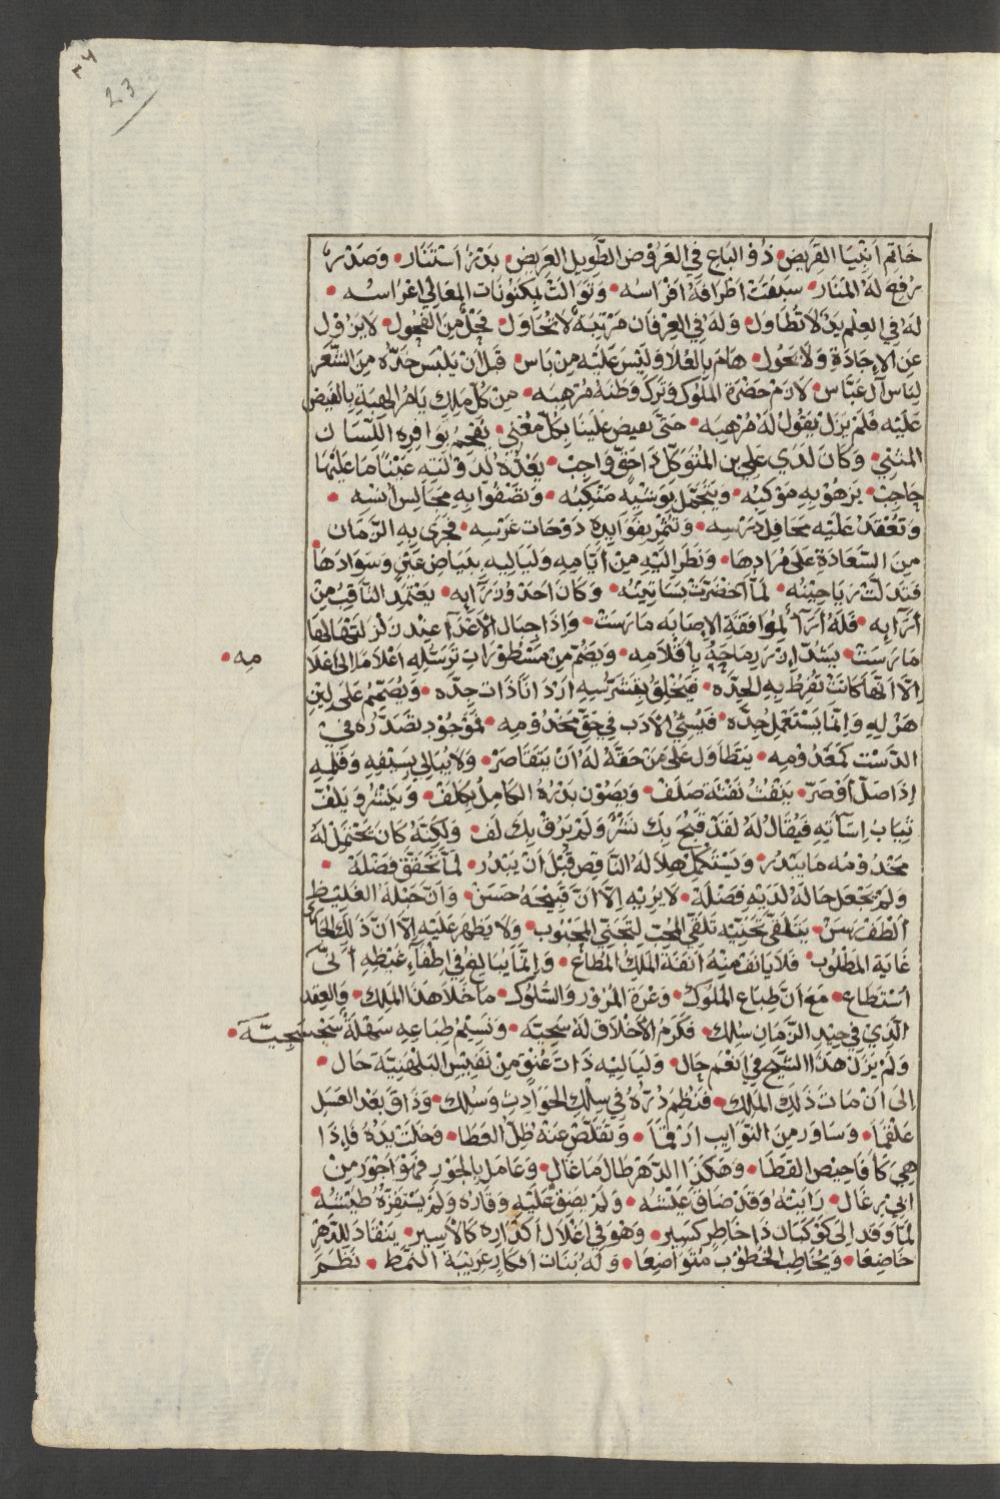 ٣٤
23
خاتم انبيا القريض • ذو الباع في العروض الطويل العريض • بدر استنار • وصدر
رفع له المنار • سبقت اطرافة افراسه • وتوالت بمكنونات المعالي اغراسه •
له في العلم يد لا تطاول • وله في العرفان مرتبة لا تحاول • فحل من الفحول • لا يزول
عن الاجادة ولا يحول • هام بالعلا وليس عليه من باس • قبل ان يلبس خده من الشعر
لباس آل عباس • لازم حضرة الملوك وترك وطنه مزهبه • من كل ملك يامر الهبة بالفيض
عليه فلم يزل يقول له مزهبه • حتى يفيض علينا بكل مغني • يفحم بوافره اللسان
المثني • وكان لدى علي بن المتوكل ذا حق واجب • يعده لدولته عينا ما عليها
حاجب • يزهو به موكبه • ويتجمل بوشيه منكبه • وتصفوا به مجالس انسه •
وتعقد عليه محافل درسه • وتثمر بفوايده دوحات غرسه • فجرى به الزمان
من السعادة على مرادها • ونظر اليه من ايامه ولياليه ببياض عين وسوادها
فتدلت رياحينه • لما اخضرت بساتينه • وكان احد وزرآيه • يعتمد الثاقب من
آرآيه • فله آرآ لموافقة الاصابه مارست • واذا جبال الاعدآ عيدن زلزلتها لها
ما رست • يشد ازر رماحه باقلامه • ويضم من مسطورات ترسله اعلاما الى اعلا
مه •
الا انها كانت تفرط به الحده • فيخلق بقشر شبيه اردانا ذات جده • ويصمم على لين
هزله وانما يستعمل جده • فيسئ الادب في حق مخدومه • لموجود تصدره في
الدست كمعدومه • يتطاول على من حقه له ان يتقاصر • ولا يبالي بسيفه وقلمه
اذا صل او صر • ينفث نفثة صلف • ويصون بدره الكامل بكلف • وينشر ويلف
ثياب اسآته فيقال له لقد قبح بك نشر ولم يرق بك لف • ولكنه كان يحتمل له
مخدومه ما يبدر • ويستكمل هلاله الناقص قبل ان يبدر • لما تحقق فضله •
ولم يجعل حاله لديه فضله • لا يريه الا ان قبيحه حسن • وان حبله الغليظ
الطف رسن • يتلقى تجنيه تلقي المحب لتجني المحبوب • ولا يظهر عليه الا ان ذلك الجفا
غاية المطلوب • فلا يانف منه انفة الملك المطاع • وانما يبالغ في اطفاء غيظه انى
استطاع • مع ان طباع الملوك • وعرة المرور والسلوك • ما خلا هذا الملك • والعقد
الذي في جيد الزمان سلك • فكرم الاخلاق له سجيه • ونسيم طباعه سهلة سجسجيته •
ولم يزل هذا الشيخ في انعم حال • ولياليه ذات عنق من نفيس البلهنية حال •
الى ان مات ذلك الملك • فنظم دره في سلك الحوادث وسلك • وذاق بعد العسل
علقما • وساور من النوايب ارقما • وتقلص عنه ظل العطا • وخلت يده فاذا
هي كافاحيص القطا • وهكذا الدهر طال ما غال • وعامل بالجور فهو اجور من
ابي رغال • رايته وقد ضاق عيشه • ولم يصف عليه وقاره ولم يستفزه طيشه •
لما وفد الى كوكبان ذا خاطر كسير • وهو في اغلال اكداره كالاسير • ينقاد للدهر
خاضعا • ويخاطب الخطوب متواضعا • وله بنات افكار غريبة النمط • نظم